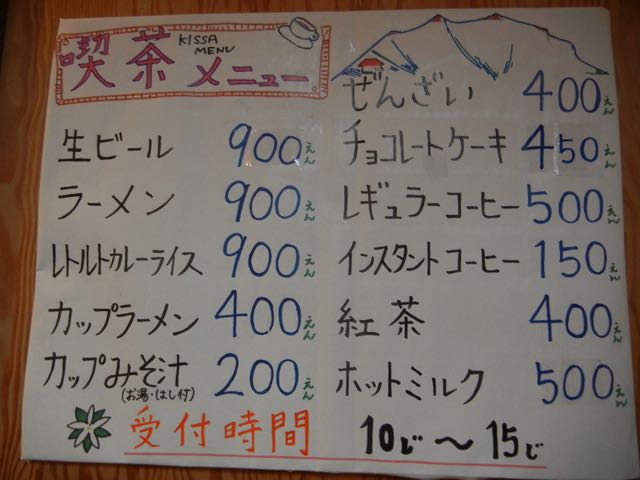 喫茶メニュー
KISSA
MENU
生ビール 900えん
ラーメン 900えん
レトルトカレーライス 900えん
カップラーメン 400えん
カップみそ汁 200えん
(お湯・はし付)
ぜんざい 400えん
チョコレートケーキ 450えん
レギュラーコーヒー 500えん
インスタントコーヒー 150えん
紅茶 400えん
ホットミルク 500えん
受付時間 10じ～15じ